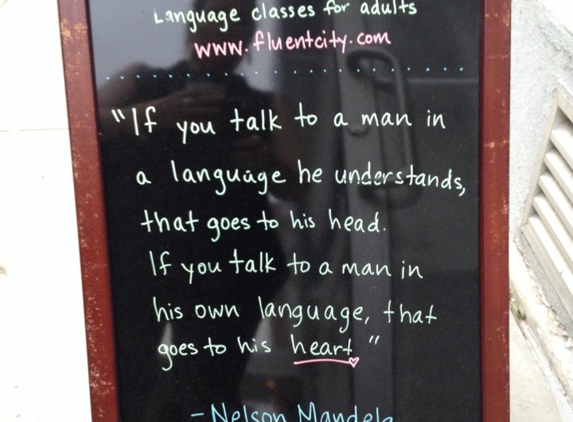 Language classes for adults
www.fluentcity.com
"If you talk to a man in
a language he understands,
that goes to his head.
If you talk to a man in
his own language, that
goes to his heart"
- Nelson Mandela